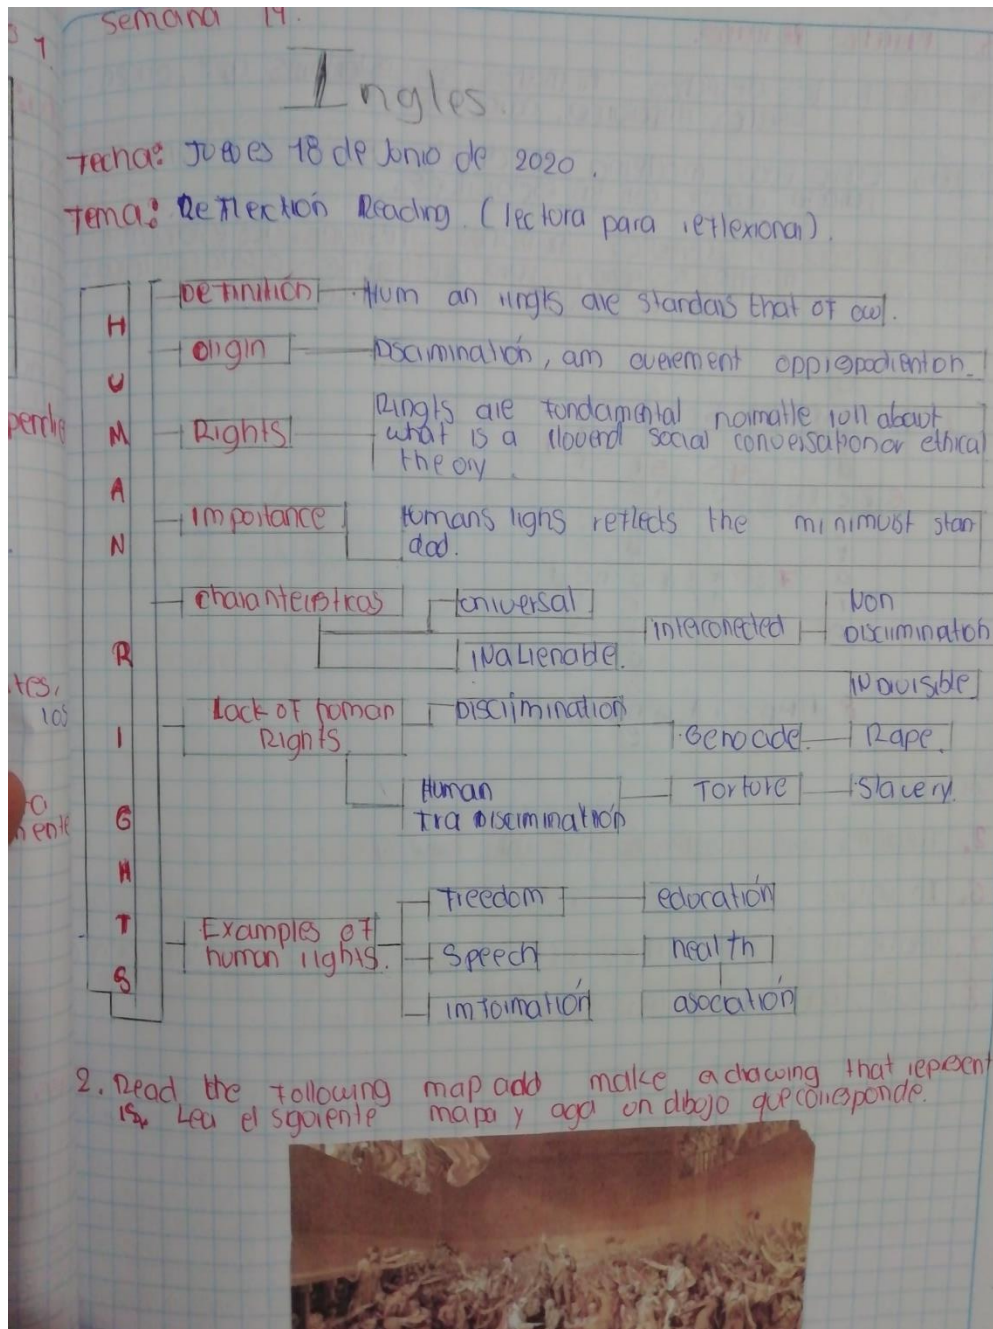 Semana 14.
1
Ingles.
Fecha: Jueves 18 de Junio de 2020.
Tema: Reflectión Reading. (lectura para reflexionar).
HUMAN RIGHTS
Definitión
Hum an ringts are standars that of owl.
Origin
Discimination, am
Rights
Ringts are fundamental about
what is a social ethical
theory.
Importance
Humans righs reflects the stan
dad.
universal
inalienable.
interconected
Non
Discrimination
indivisible
Lack of human
Rights
Discrimination
Genocide
Rape.
Human
Tra Discrimination
Torture
Slavery.
Examples of
human rights.
Freedom
educatión
Speech
health
imformatión
asociatión
perche
tes,
los
2. Read the following map add make a drawing that represent
is, Lea el siguiente mapa y aga un dibujo que corresponde.